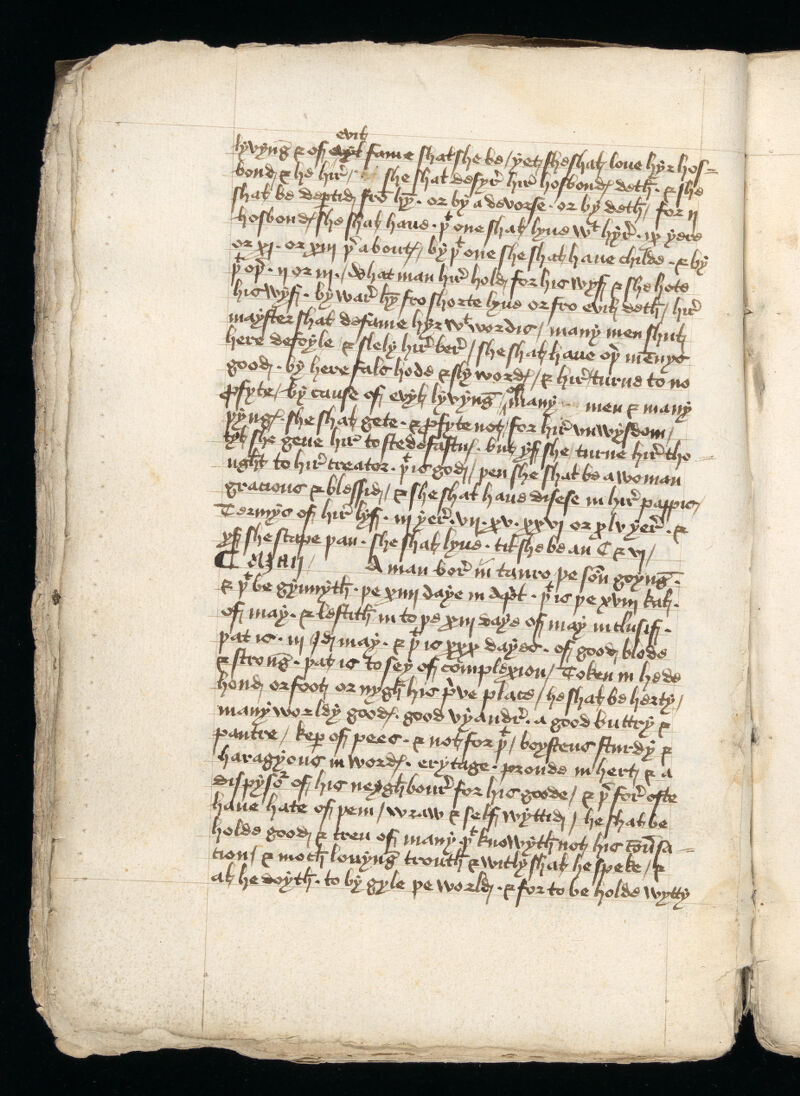 evil
lyvyng & of fame shal she be / yet she shal love hyr hos=
bond & he hir / she shal desyr hir hosbond deth · & she
shal be deptid fro hy · or by a devorse · or by deth / for ij
hosbond she shal have · þt one shal lyve wt hyr · ix yere
or xj · or xiij þr aboute / by þt one she shal have childe · & by
þt oþr · ij or iij · / what man hir hold for his wyf & she hote
his wyf · by war hy fro shorte lyve or fro evil deth / hir
mayster shal defame hyr wt wordis / many men shul
here defoyle & slely hir / she shal have oþr mennys
good · by here falshode & sly word / & hir turne to no
profyte / by cause of evyl lyvyng / of many men & many
þyng she shal gete · & profyte not / for hir unwysdom /
tyl she geve hir to stedefastn · but yf she / turne hir tho
ught to hir creator · þt is god / þen she shal be a woman
gracious & blessid / & she shal have disese in hir pappis /
Termys of hir lyf · iij yer · vij · xv · xxvj or xlv yer · &
yf she scape þan · she shal lyve · til she be an C & vj /
Man / A man bor in tauro þe son goyng ·
& þt be gynnyth · þe xiiij daye in Apl · þt is þe xviij kal ·
of may · & lestith in to þe xiij daye of may inclusif ·
þat is · iij Id may · & þt is xxx dayes · of good blode
& strong · þat is to sey of complexion / Token in hede
hond or foot or nygh his prve place / he shal be herty /
many worldy good · good vyandr · a good buttry &
pantre / kep of pees · & not for þt / boysteus sturdy &
haragyous in word · erytage · proude in hert & a
dispysor of his neyghbour for his goode / & þr for ofte
have hate of þem / wraw & self wyttid / he shal be
holde good & treu of many þt knowyth not his conusa=
tion / & moch lovyng trouth & witly shal he speke / &
al he doyth · to by gyle þe world · & for to be holde wytty